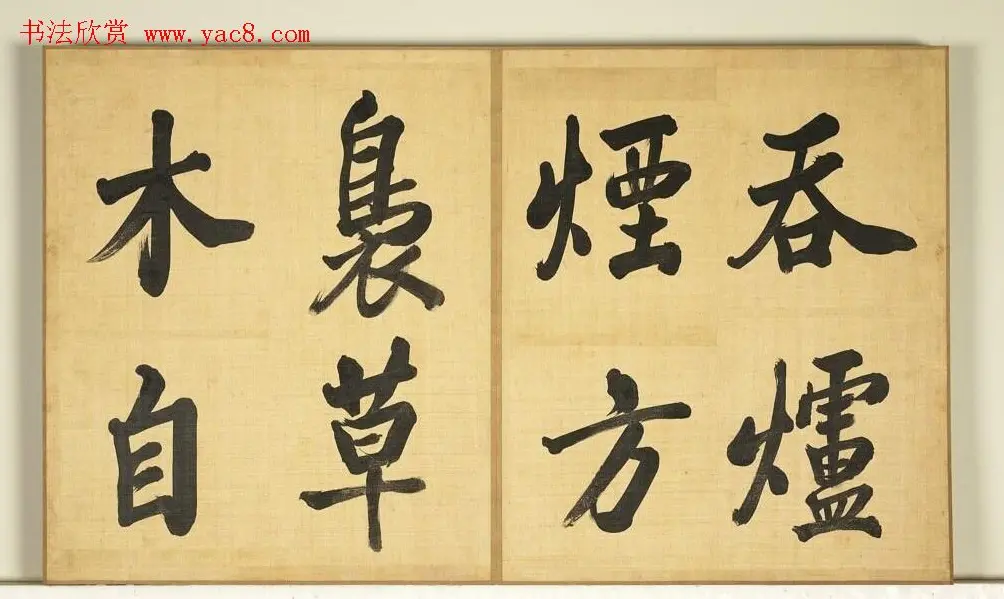 书法欣赏 www.yac8.com
吞爐
煙方
裊草
木自